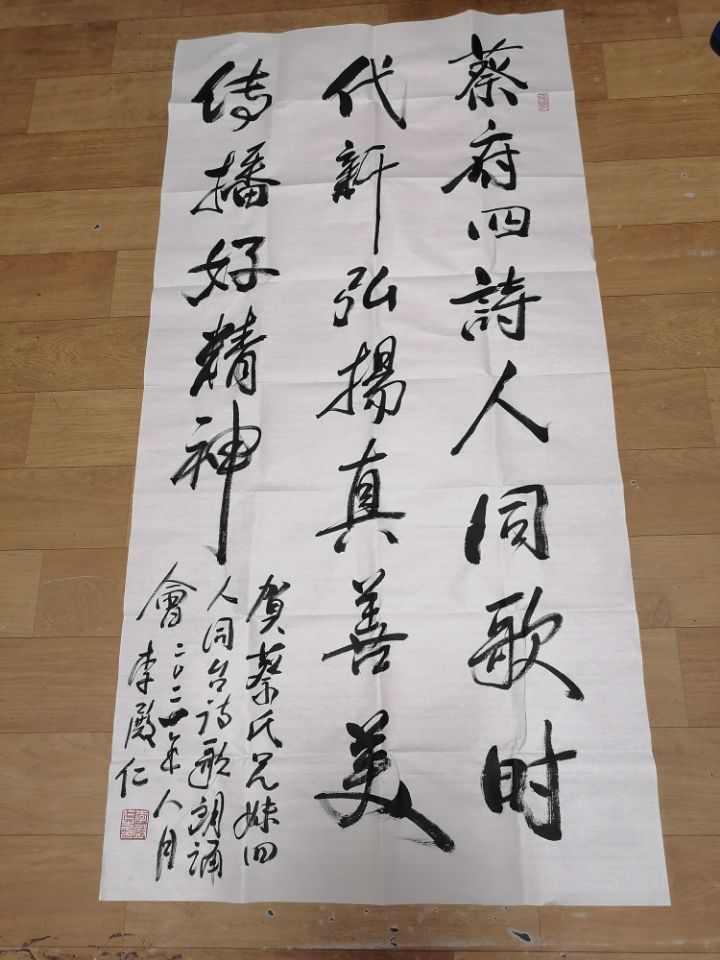 蔡府四詩人同歌时
代新弘揚真善美
传播好精神
贺蔡氏兄妹四
人同台诗歌朗诵
會二〇二年八月
李殿仁